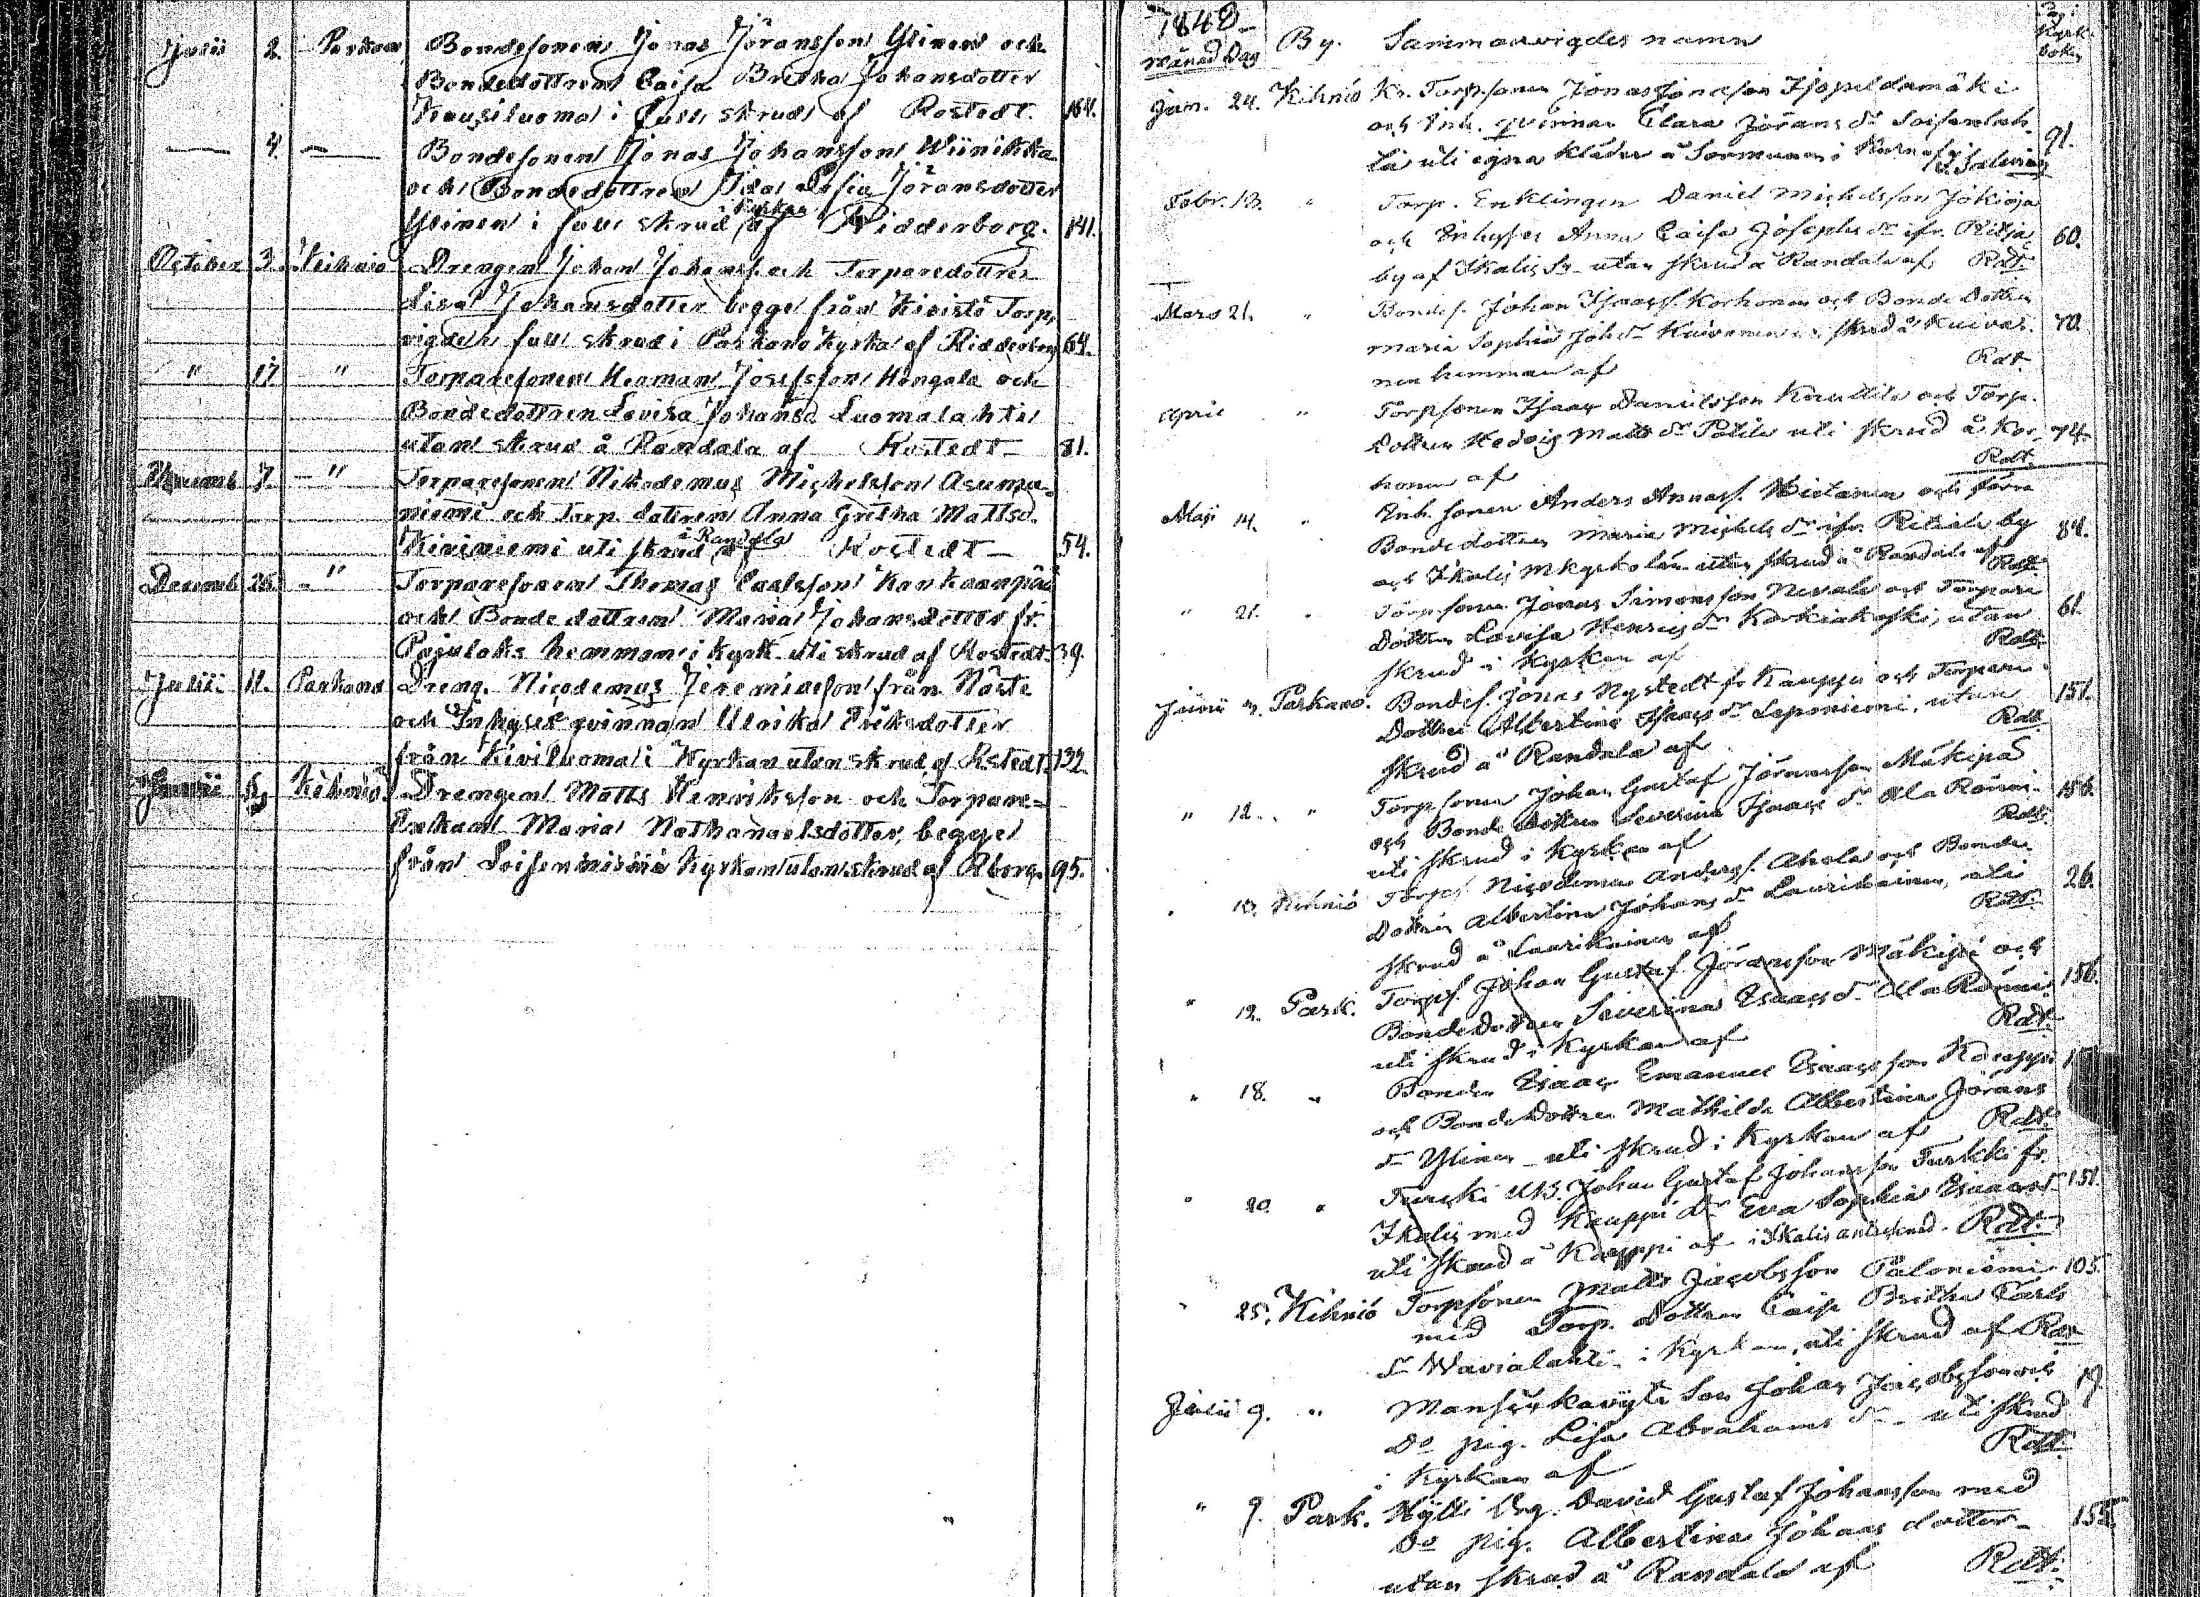 Julii 2. Parkano Bondesonen Jonas Jöransson Ylinen och
Bondedottren Caisa Bretha Johansdotter
i full skrud af Rostedt. 164.
— 4. — Bondesonen Jonas Johansson Wiinikka
och Bondedottren Ida Sofia Jöransdotter
Ylinen i full skrud i Kyrkan af Ridderborg. 141.
October 3. Keihnio Drengen Johan Johanss. och Torparedottren
Lisa Johansdotter begge från Kivistö Torp,
vigde i full skrud i Parkano Kyrka af Ridderborg 64.
" 17 " Torparesonen Herman Josefsson Hongala och
Bondedottren Lovisa Johansd. Luomalahti
utan skrud å Randala af Rostedt— 81.
Novemb 7. —" Torparesonen Nikodemus Michelsson Asuma-
niemi och Torp. dottren Anna Gretha Mattsd.
Kiviniemi uti skrud å Randala af Rostedt— 54.
Decemb 26. —" Torparesonen Thomas Carlsson Kankaanpää
och Bondedottren Maria Johansdotter fr.
Pajuloks hemman i Kyrk. uti skrud af Rostedt. 39.
Julii 11. Parkano Dreng. Nicodemus Jeremiasson från
och Inhyses qvinnan Ulrika Eriksdotter
från Kiviluoma i Kyrkan utan skrud af Rstedt. 132.
Junii Kihniö Drengen Matts Henriksson och Torpare-
Enkan Maria Nathanaelsdotter, begge
från Kyrkan utan skrud af Rborg. 95.
1848—
Månad Dag By. Sammanvigdes namn
Pag. i Kyrk. bok.
Jan. 24. Kihniö Kr. Torpsonen Jonas Jonasson
och Inh. qvinnan Clara Jörans dr Soisenlah-
ti uti egna kläder å Sormunen i 91.
Febr. 13. " Torp. Enklingen Daniel Michelsson Jokioja
och Inhyses Anna Caisa Josephs dr ifr. 60.
by af Ikalis Sn utan skrud å Randala af Rdt.
Mars 21. " Bondes. Johan Isaacss. Korhonen och Bonde Dottren
Maria Sophia Joh. dr Kuivanen i skrud å Kuiva- 70.
nen hemman af Rdt.
April " Torpsonen Isaac Danielsson Knuttila och Torp.
Dottren Hedvig Matts dr Potila uti skrud å Kor- 74.
honen af Rdt.
Maji 14. " Inh. sonen Anders Annass. Hietanen och förra
Bondedottren Maria Michels dr ifr. by 84.
och Ikalis M kyrkolän utan skrud å Randala af Rdt.
" 21. " Torpsonen Jonas Simonsson Nevala och Torpare
Dottren Lovisa Henrics dr Korkiakoski, utan 61.
skrud i Kyrkan af Rdt.
Junii Parkano. Bondes. Jonas Nystedt fr. Kauppi och Torpare
Dottren Albertina Isaacs dr Leponiemi, utan 151.
skrud å Randala af Rdt.
" 12. " Torpsonen Johan Gustaf Jöransson Mäkipää
och Bonde Dottren Severina Isaacs dr Ala Rönni- 156.
uti skrud i Kyrkan af Rdt.
" Kihniö Torps. Nicodemus Anderss. Ahola och Bonde-
Dottren Albertina Johans dr Laurikainen, uti 26.
skrud å Laurikainen af Rdt.
" 12. Park. Torps. Johan Gustaf Jöransson Mäkipä och
Bonde Dottren Severina Isaacs dr Ala Rönni 156.
uti skrud i Kyrkan af Rdt.
" 18. " Bonden Isaac Emanuel Isaacsson Kauppi
och Bonde Dottren Mathilda Albertina Jörans
dr Ylinen — uti skrud i Kyrkan af Rdt.
" 20. " Turcki Johan Gustaf Johansson Turkki fr.
Ikalis med Kauppi dr Eva Sophia Isaacsd. 151.
uti skrud å Kauppi af — i Ikalis Rdt.
" 25. Kihniö Torpsonen Matts Jacobsson Paloniemi 105.
med Torp. Dottren Caisa Bretha Carls
dr Wavialahti — i Kyrkan, uti skrud af Rdt
Julii 9. " Son Johan Jacobsson och 19.
Do pig. Lisa Abrahams dr — uti skrud
i Kyrkan af Rdt.
" 9. Park. Kytti Drg. David Gustaf Johansson med
Do pig. Albertina Johans dotter— 155.
utan skrud å Randala af Rdt.